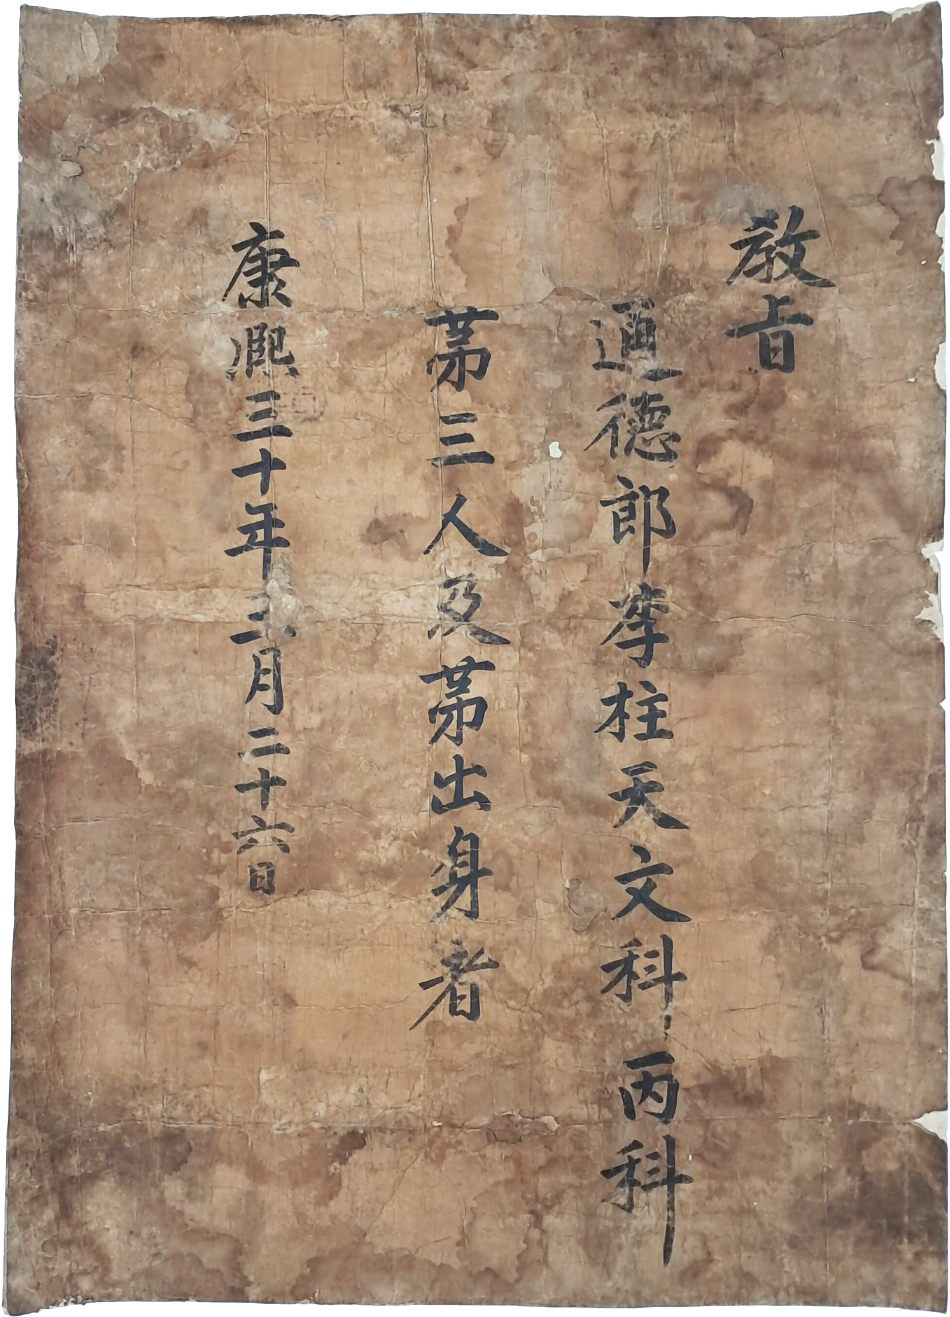 敎旨
通德郎李柱天文科丙科
苐三人及苐出身者
康熙三十年三月二十六日